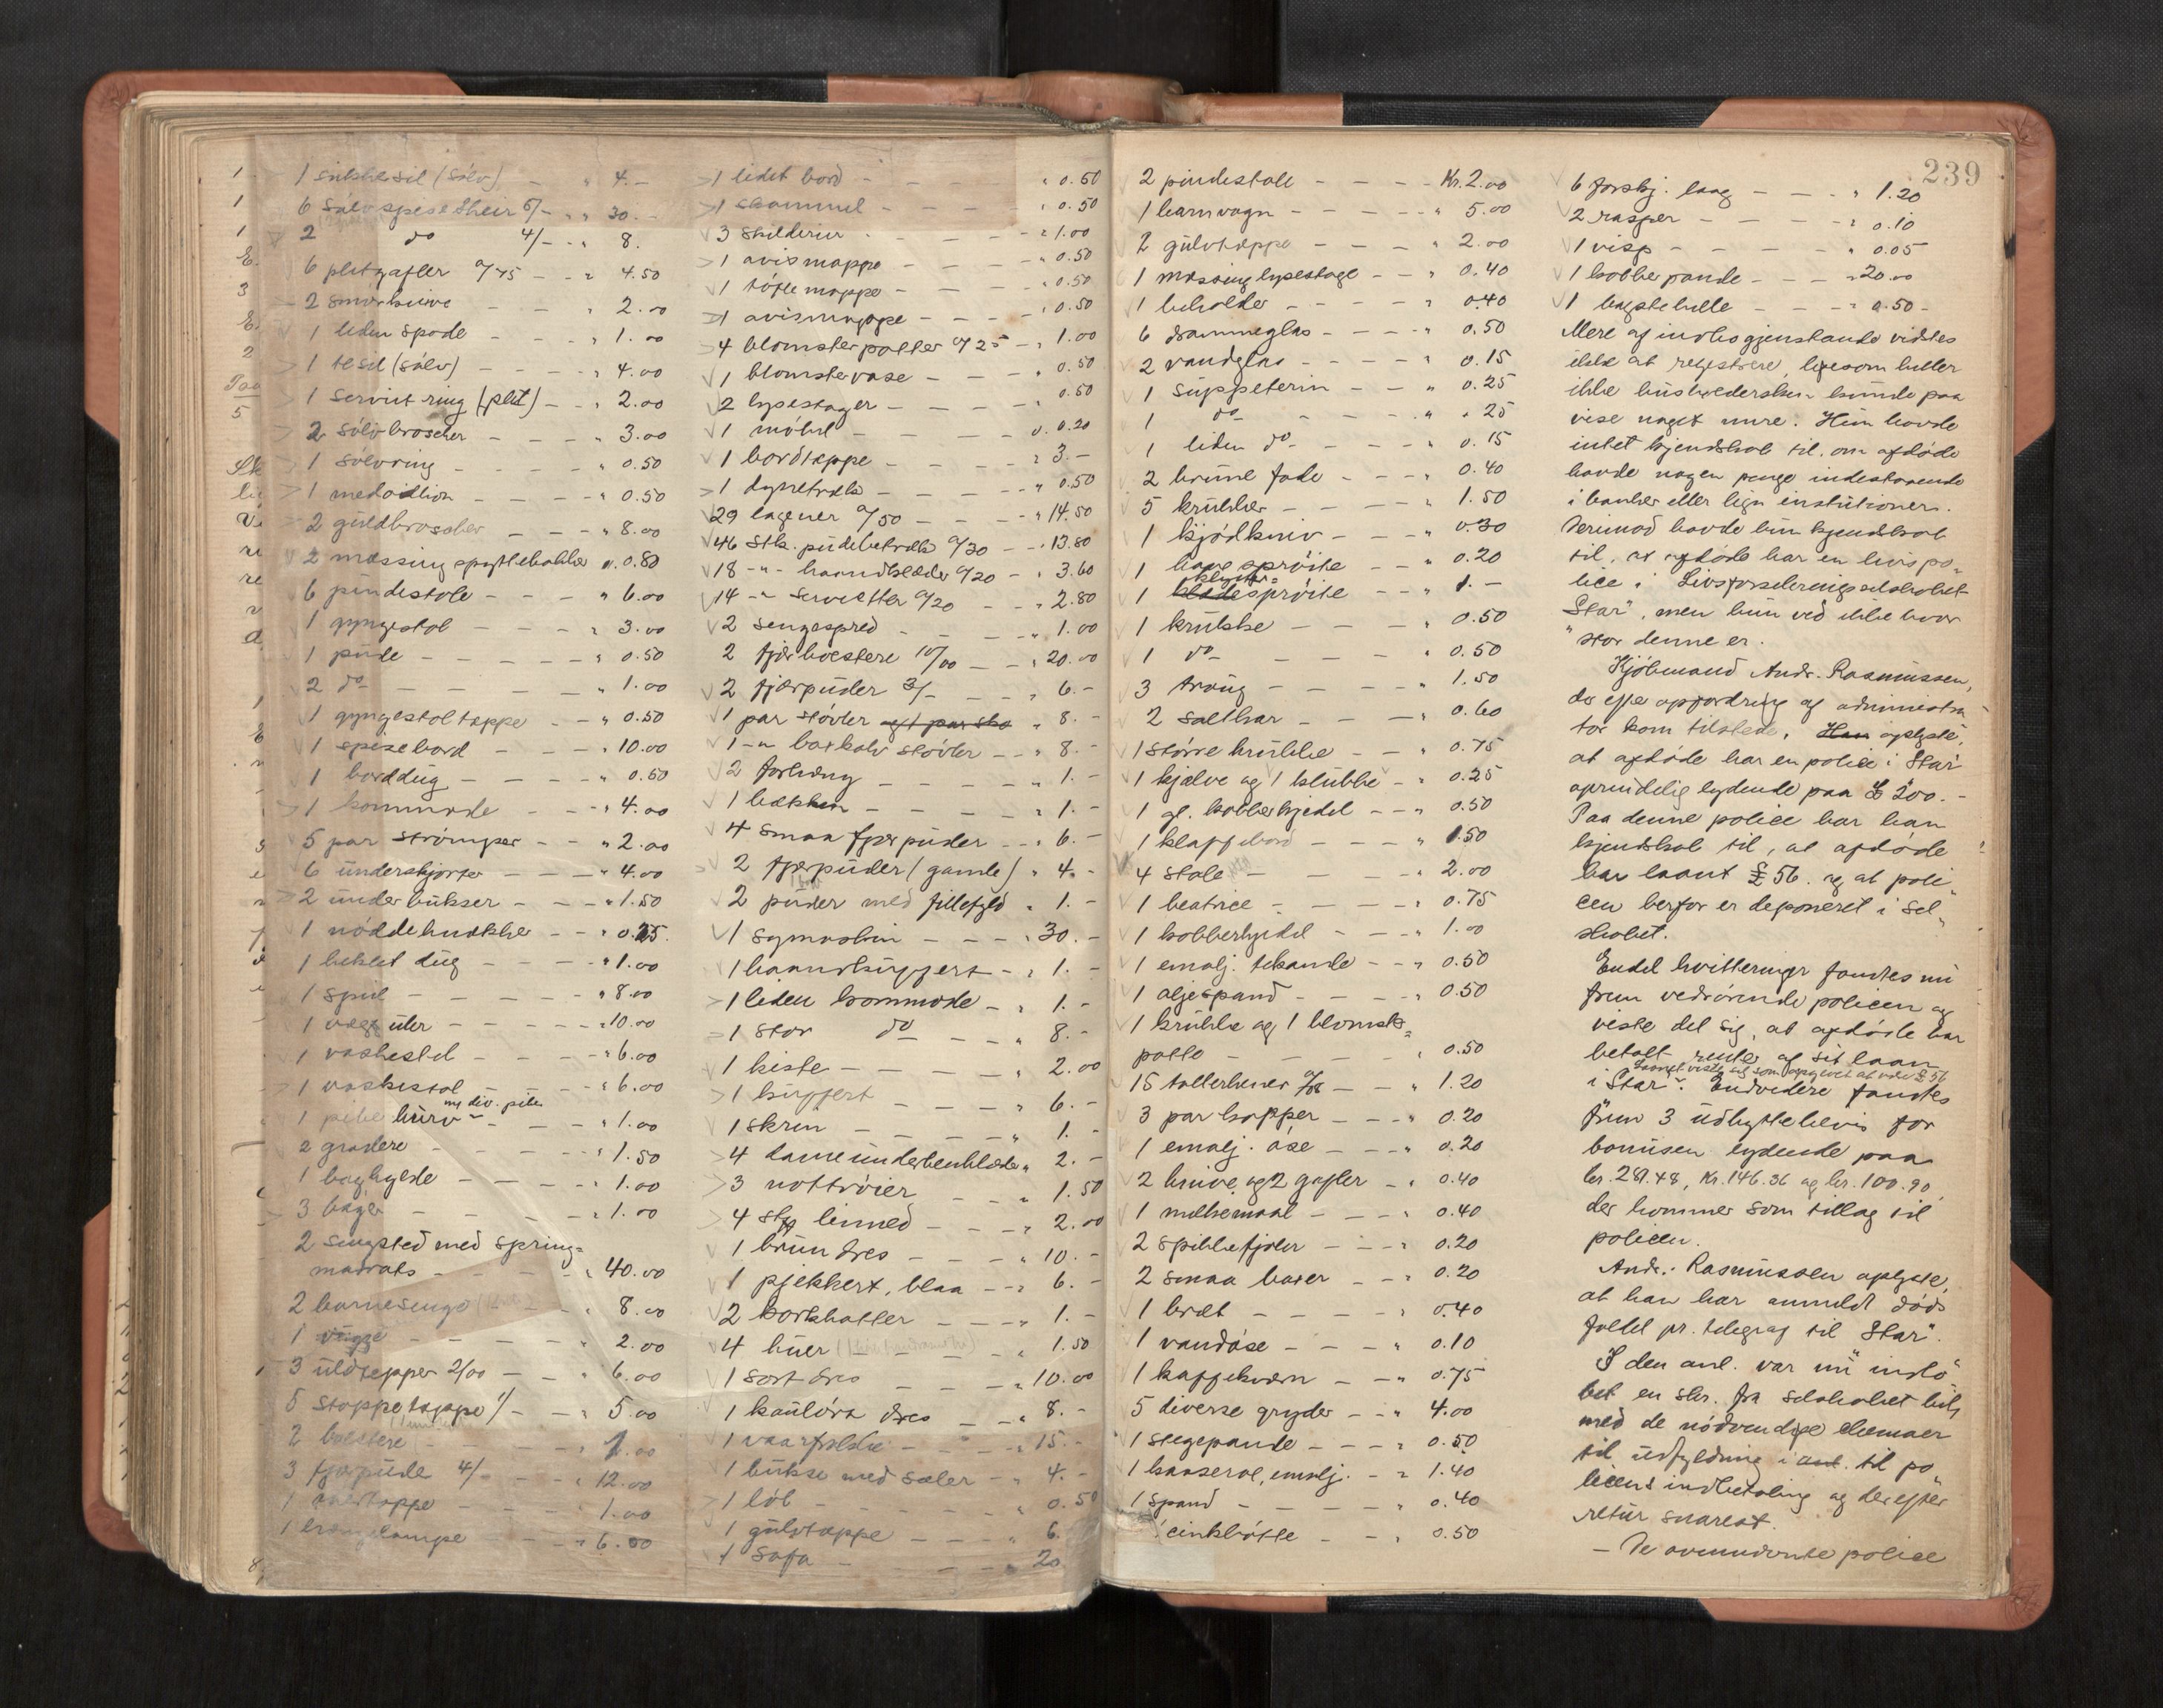 1 sukkersil (sölv) - " 4.-
6 sölvspiseskeir 5/- - " 30.-
2 do 4/- - " 8.
6 pletgafler a/75 - - " 4.50
2 smørknive - - " 2.00
1 liden spade - - - " 1.00
1 tesil (sölv) - - - " 4.00
1 serviet ring (plet) - - " 2.00
2 sölvbroscher - - - " 3.00
1 sølvring - - - - " 0.50
1 medaillon - - - - " 0.50
2 guldbroscher - - - " 8.00
2 messing spyttebakker " 0.80
6 pindestole - - - " 6.00
1 gyngestol - - - " 3.00
1 pude - - - - - " 0.50
2 do - - - - - " 1.00
1 gyngestoltæppe - - " 0.50
1 spisebord - - - " 10.00
1 borddug - - - - " 0.50
1 kommode - - - " 4.00
5 par strömper - - " 2.00
6 underskjorter - - - " 4.00
2 underbukser - - - " 1.50
1 nøddeknækker - - " 0.25
1 heklet dug - - - - " 1.00
1 speil - - - - - " 8.00
1 vægg uhr - - - - " 10.00
1 vaskestel - - - - " 6.00
1 vaskestol - - - - " 6.00
1 pibe kurv m/ div. piber - - - " 1.00
2 gradere - - - - " 1.50
1 boghylde - - - - " 1.00
3 bøger - - - - " 1.00
2 sengsted med spring=
madrats - - - - " 40.00
2 barnesenge - - " 8.00
1 vugge - - - - " 2.00
3 uldtepper 2/00 - - " 6.00
5 stoppetæppe 1/ - - " 5.00
2 bolstere - - - - " 1.00
3 fjærpude 4/- - - - " 12.00
1.00
1 hængelampe - - - " 6.00
1 lidet bord - - - " 0.50
1 skammel - - - - " 0.50
3 skilderier - - - " 1.00
1 avismappe - - - - " 0.50
1 töffelmappe - - - " 0.50
1 avismappe - - - - " 0.50
4 blomsterpotter a/25 - " 1.00
1 blomstervase - - - " 0.50
2 lysestager - - - - " 0.50
1 möbel - - - - " 0.20
1 bordtæppe - - - - " 3.-
1 dynetræk - - - - " 0.50
29 lagener a/50 - - - " 14.50
46 stk. pudebetræk a/30 - - " 13.80
18 -"- haandklæder a/20 - " 3.60
14 -"- servietter a/20 - - " 2.80
2 sengespred - - - - " 1.00
2 fjærbolstere 10/00 - - " 20.00
2 fjærpuder 3/- - - - " 6.-
1 par støvler og 1 par sko " 8.-
1 -"- boxkalv støvler - - " 8.-
2 forheng - - - - - " 1.-
1 bækken - - - - - " 1.-
4 smaa fjærpuder - - " 6.-
2 fjærpuder (gamle) " 4.-
2 puder med fillefyld " 1.-
1 symaskin - - - " 30.-
1 haandkuffert - - " 1.-
1 liden kommode - " 1.-
1 stor do - - " 8.-
1 kiste - - - - - " 2.00
1 kuffert - - - - " 6.-
1 skrin - - - - - " 1.-
4 dameunderbenklæder " 2.-
3 nattrøier - - " 1.50
4 stk linned - - - " 2.00
1 brun dres - - - " 10.-
1 pjekkert, blaa - - " 6.-
2 korkhatter - - - " 1.-
4 huer - - - - " 1.50
1 sort dres - - - " 10.00
1 kaulört dres - - " 8.-
1 vaarfrakke - - - " 15.-
1 bukse med sæler - " 4.-
1 løb - - - - - " 0.50
1 gulvtæppe - - - " 6.
1 sofa - - - " 20
239
2 pindestole - - - - Kr. 2.00
1 barnvogn - - - - " 5.00
2 gulvtæppe - - - - " 2.00
1 messing lysestage - - " 0.40
1 beholder - - - - " 0.40
6 drammeglas - - - " 0.50
2 vandglas - - - - " 0.15
1 suppeterin - - - " 0.25
1 do - - - - " " 25
1 liden do - - - " 0.15
2 brune fade - - - " 0.40
5 krukker - - - - " 1.50
1 kjödkniv - - - " 0.30
1 havesprøite - - " 0.20
1 klyster=sprøite - - " 1.-
1 krukke - - - - " 0.50
1 do - - - - " 0.50
3 traug - - - - " 1.50
2 saltkar - - - " 0.60
1 större krukke - - " 0.75
1 kjælve og 1 klubbe - " 0.25
1 gl. kobberkjedel - - " 0.50
1 klappebord - - - " 1.50
4 stole - - - - " 2.00
1 beatrice - - - - " 0.75
1 kobberkjedel - - - " 1.00
1 emalj. tekande - - " 0.50
1 oljespand - - - - " 0.50
1 krukke og 1 blomst=
potte - - - - - " 0.50
15 tallerkener a/08 - - " 1.20
3 par kopper - - - " 0.20
1 emalj. öse - - - " 0.20
2 knive og 2 gafler - " 0.40
1 melkemaal - - - " 0.40
2 spikkefjøler - - " 0.20
2 smaa baxer - - " 0.20
1 bræt - - - - - " 0.40
1 vandöse - - - - " 0.10
1 kaffekværn - - " 0.75
5 diverse gryder - - " 4.00
1 stegepande - - - " 0.50
1 kasserol, emalj. - " 1.40
1 spand - - - - - " 0.40
1 cinkbötte - - - " 0.50
6 forskj. laag - - - " 1.20
2 rasper - - - - " 0.10
1 visp - - - - - " 0.05
1 kobberpande - - - " 20.00
1 bagstehelle - - - " 0.50 -
Mere af indbogjenstande vidstes
ikke at registrere, ligesom heller
ikke husholdersken kunde paa
vise noget mere. Hun havde
intet kjendskab til, om afdøde
havde nogen penge indestaaende
i banker eller lign institutioner.
Derimod havde hun kjendskab
til, at afdøde har en livspo=
lice i Livsforsikringsselskabet
"Star", men hun ved ikke hvor
stor denne er.
Kjöbmand Andr. Rasmussen,
der efter opfordring af administra
tor kom tilstede. Han oplyste,
at afdøde har en police i "Star"
oprindelig lydende paa £ 200.-
Paa denne police har han
kjendskab til, at afdøde
har laant £ 56. og at poli=
cen herfor er deponeret i sel=
skabet.
Endel kvitteringer fandtes nu
frem vedrörende policen og
viste det sig, at afdøde har
betalt renter af sit laan
Laanet viste sig som opgivet at være £ 56
i "Star". Endvidere fandtes
frem 3 udbyttebevis for
bonusen lydende paa
kr. 281.48, Kr. 146.36 og kr. 100.90,
der kommer som tillæg til
policen.
Andr. Rasmussen oplyste,
at han har anmeldt døds
faldet pr. telegraf til "Star".
I den anl. var nu indlö=
bet en skr. fra selskabet bil.
med de nödvendige skemaer
til udfyldning i anl. til po
licens indbetaling og derefter
retur snarest.
- De omvundne police